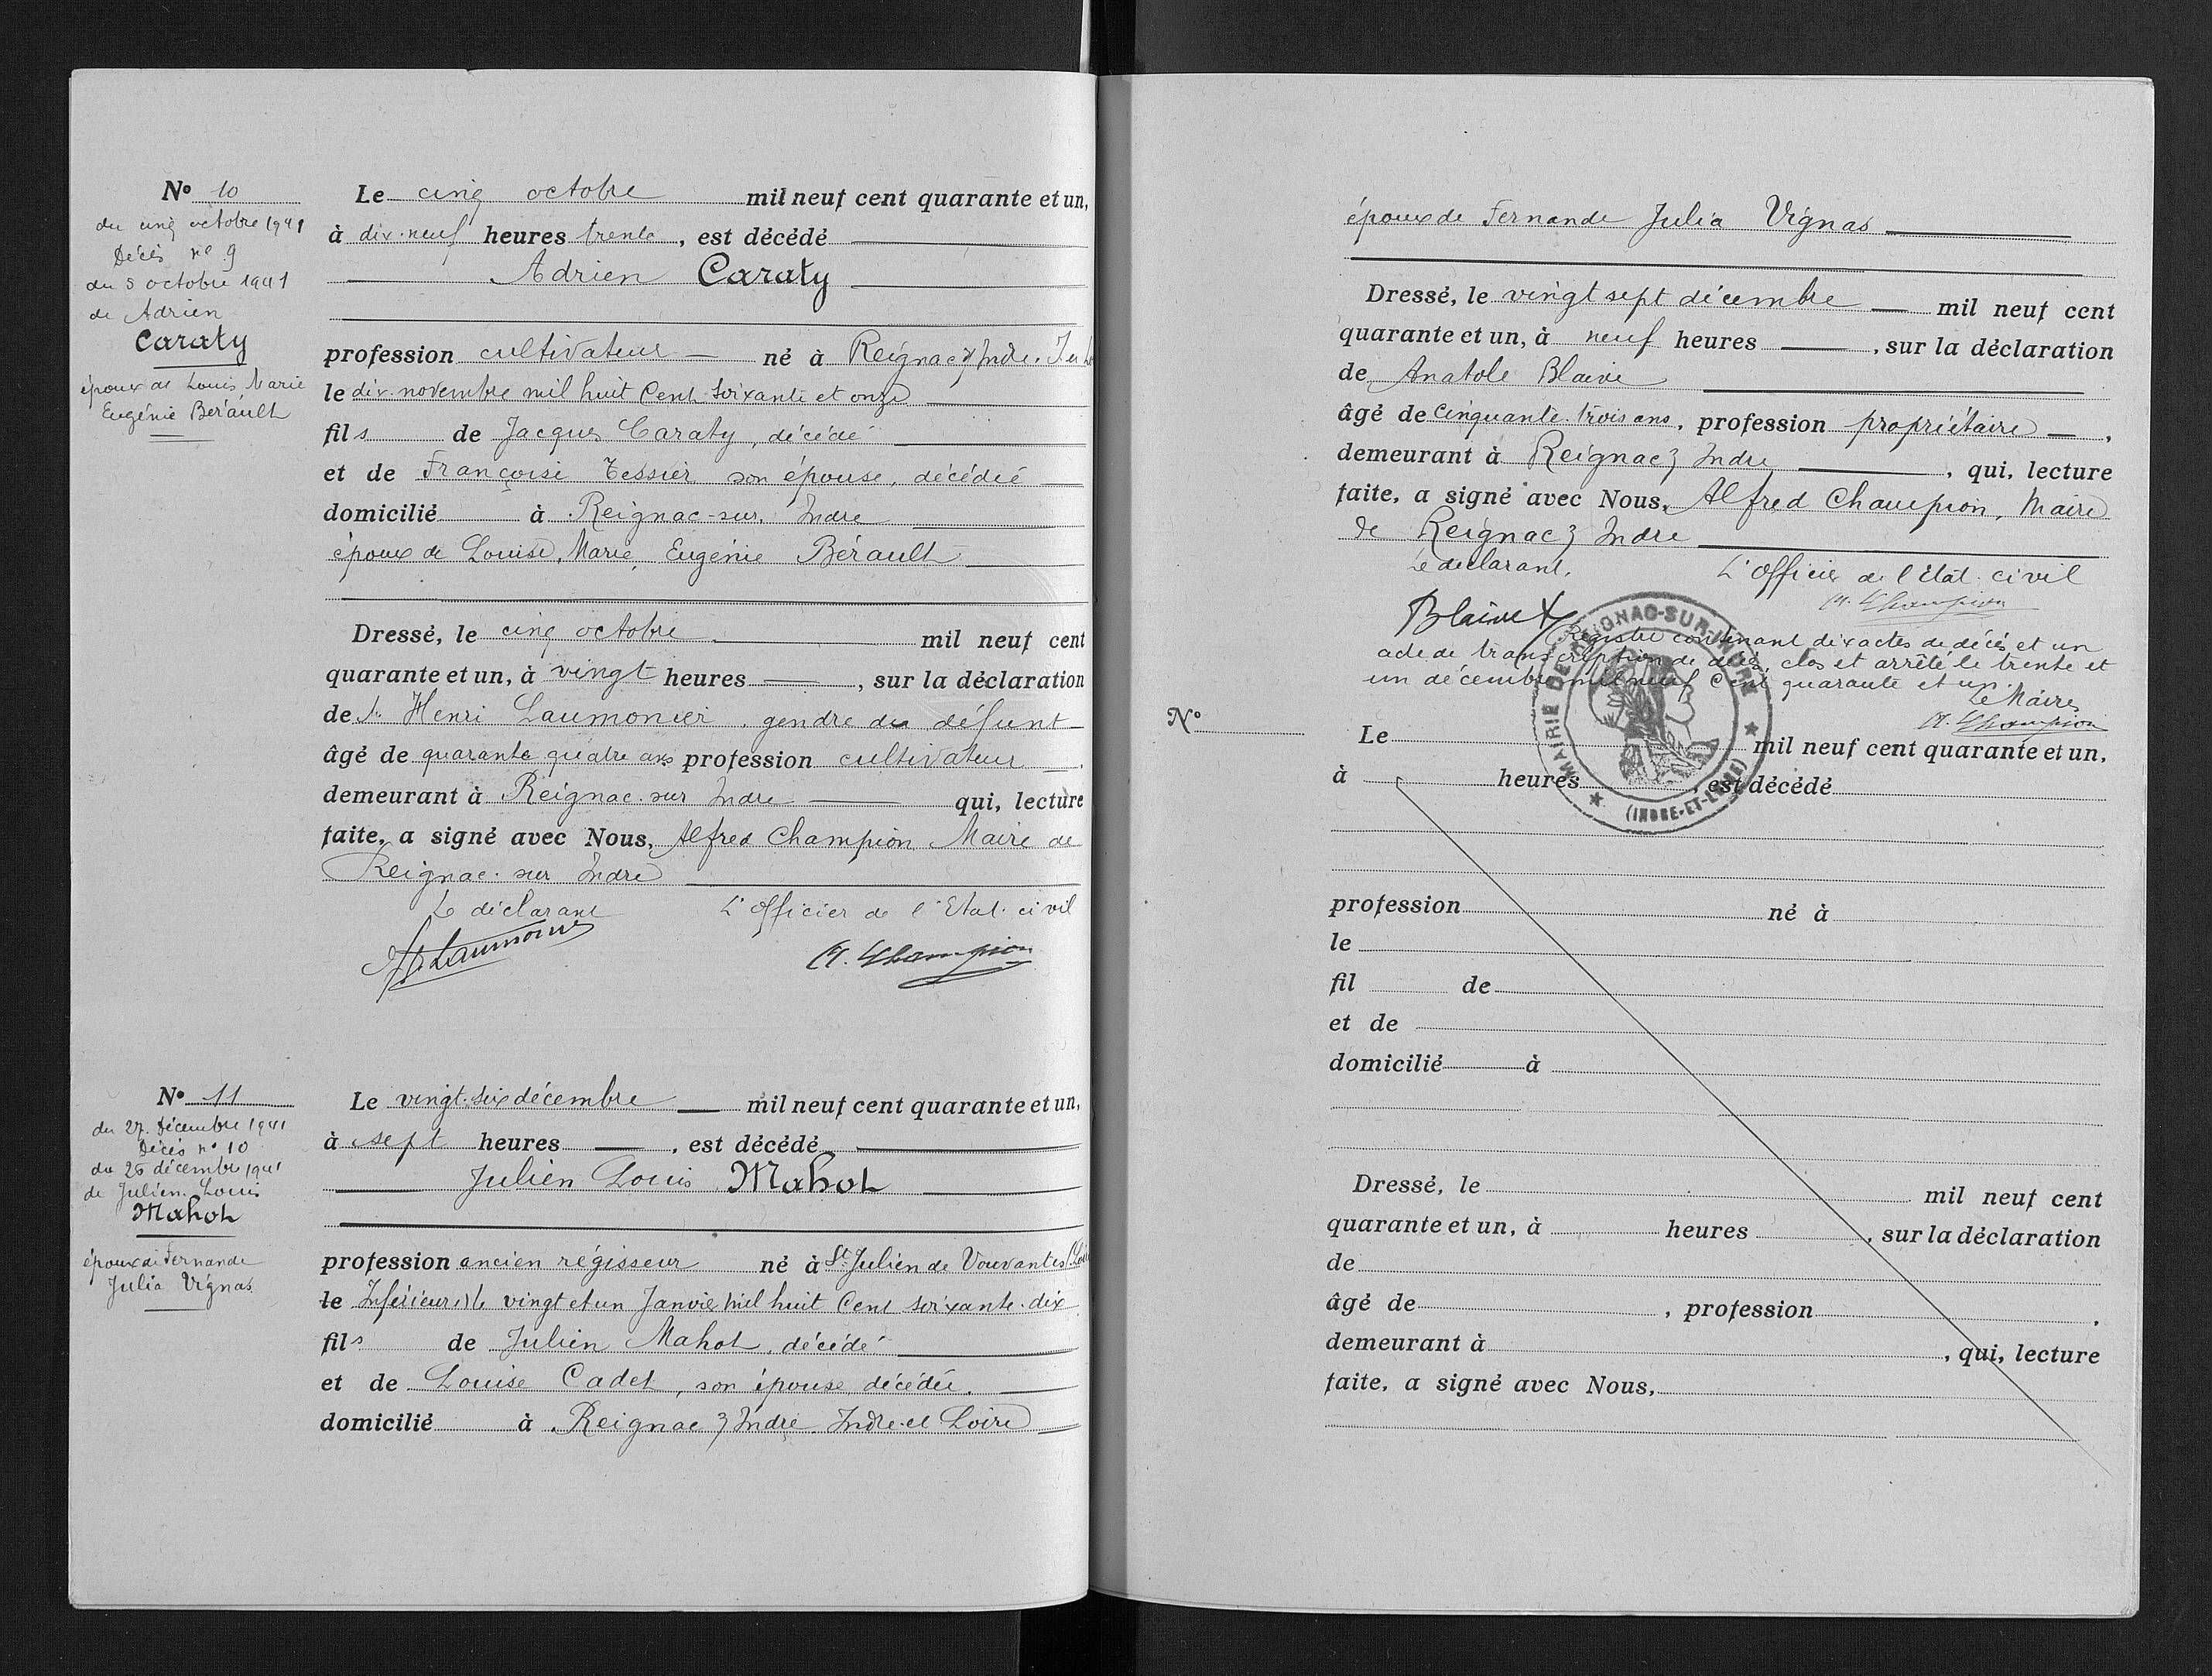 N° 10
du cinq octobre 1941
Décès n° 9
du 5 octobre 1941
de Adrien
Caraty
époux de Louis Marie
Eugénie Berault
Le cinq octobre mil neuf cent quarante et un,
à dix-neuf heures trente, est décédé
Adrien Caraty
profession cultivateur né à Reignac s/ Indre. I. et L.
le dix novembre mil huit Cent soixante et onze
fils de Jacques Caraty, décédé
et de Françoise Tessier son épouse, décédée
domicilié à Reignac-sur-Indre
époux de Louise, Marie, Eugénie Bérault
Dressé, le cinq octobre mil neuf cent
quarante et un, à vingt heures, sur la déclaration
de Henri Laumonier, gendre du défunt
âgé de quarante quatre ans profession cultivateur.
demeurant à Reignac-sur Indre qui, lecture
faite, a signé avec Nous, Alfred Champion Maire de
Reignac-sur Indre
Le déclarant L'officier de l'Etat-civil
Laumonier A. Champion
N° 11
du 27 décembre 1941
Décès n° 10
du 26 décembre 1941
de Julien Louis
Mahot
époux de Fernande
Julia Vignas
Le vingt-six décembre mil neuf cent quarante et un,
à sept heures, est décédé
Julien Louis Mahot
profession ancien régisseur né à St Julien de Vouvantes (Loire
le Inférieure) le vingt et un Janvier mil huit Cent soixante-dix
fils de Julien Mahot, décédé
et de Louise Cadet, son épouse décédée.
domicilié à Reignac s/ Indre. Indre-et Loire
époux de Fernande Julia Vignas
Dressé, le vingt sept décembre mil neuf cent
quarante et un, à neuf heures, sur la déclaration
de Anatole Blaive
âgé de cinquante-trois ans, profession propriétaire,
demeurant à Reignac s/ Indre, qui, lecture
faite, a signé avec Nous, Alfred Champion, Maire
de Reignac s/ Indre
Le déclarant, L'officier de l'Etat-civil
Blaive A. Champion
Registre contenant dix actes de décès et un
acte de transcription de décès, clos et arrêté le trente et
un décembre mil neuf Cent quarante et un.
Le Maire,
A. Champion
MAIRIE DE REIGNAC-SUR-INDRE
(INDRE-ET-LOIRE)
N°
Le mil neuf cent quarante et un,
à heures, est décédé
profession né à
le
fil de
et de
domicilié à
Dressé, le mil neuf cent
quarante et un, à heures, sur la déclaration
de
âgé de, profession.
demeurant à, qui, lecture
faite, a signé avec Nous,